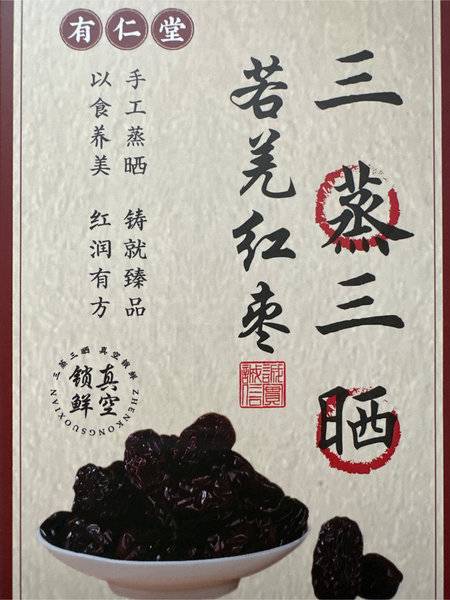 有仁堂
三蒸三晒
若羌红枣
手工蒸晒 铸就臻品
以食养美 红润有方
三蒸三晒 真空锁鲜
ZHENKONGSUOXIAN
真空
锁鲜